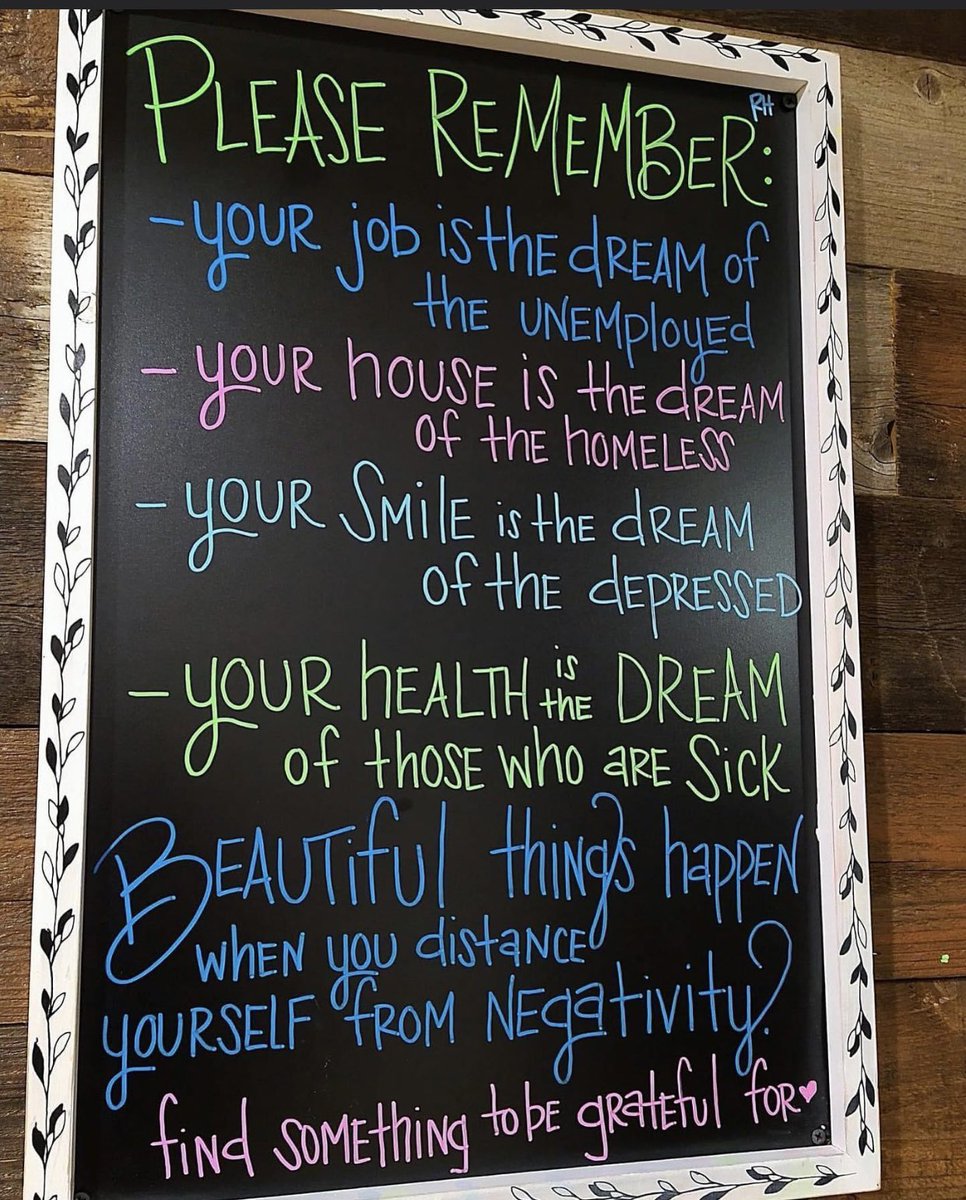 PLEASE REMEMBER:
RH
- YOUR job is the dREAM of
the UNEMployed
- YOUR hOUSE is the dREAM
of the hOMELESS
- YOUR SMilE is the dREAM
of the dEPRESSED
- YOUR hEALTH is the DREAM
of those who ARE Sick
BEAUTiful things happen
when you distance
yourself from Negativity?
find something to be grateful for ♥